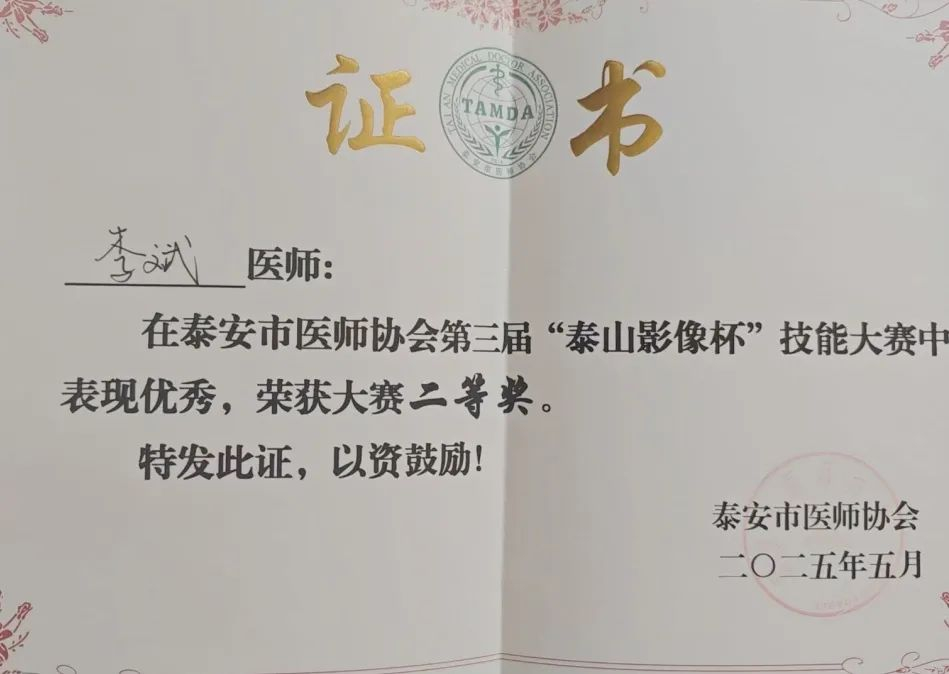 证书
TAI AN MEDICAL DOCTOR ASSOCIATION
TAMDA
泰安市医师协会
李斌 医师：
在泰安市医师协会第三届“泰山影像杯”技能大赛中
表现优秀，荣获大赛二等奖。
特发此证，以资鼓励！
泰安市医师协会
二〇二五年五月